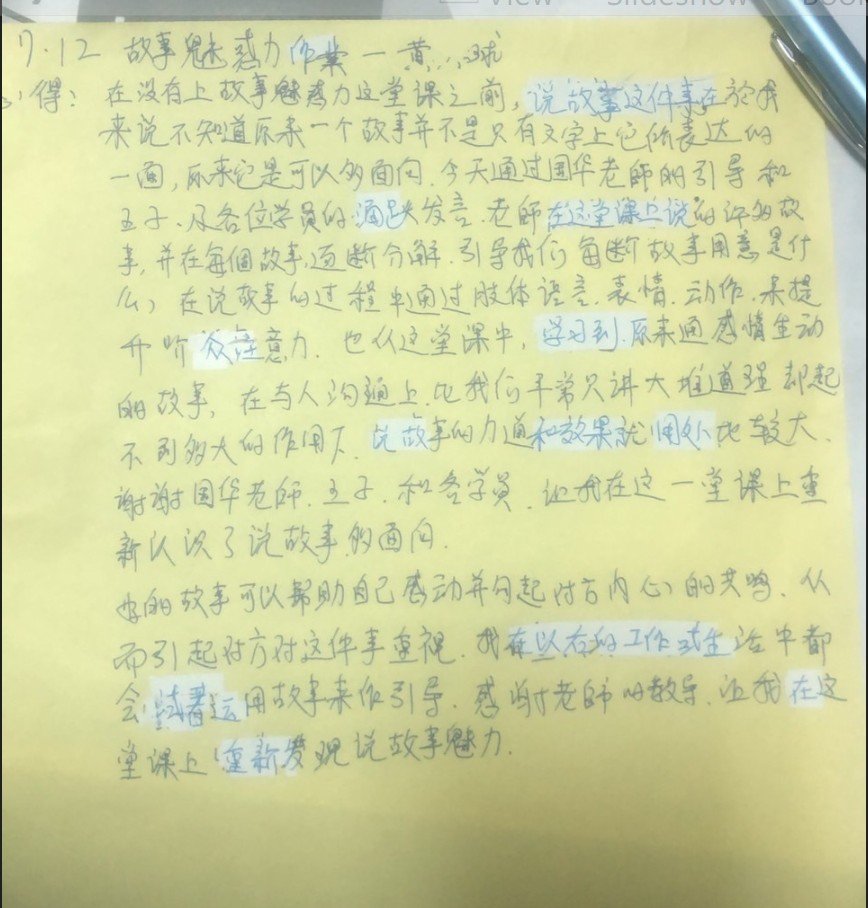 View Slideshow
7.12 故事魅力作业一黄
得: 在没有上故事魅力这堂课之前,说故事这件事在於我
来说不知道原来一个故事并不是只有文字上它所表达的
一面,原来它是可以多面向.今天通过国华老师的引导和
王子、及各位学员的踊跃发言.老师在这堂课上说的许多故
事,并在每個故事,逐断分解.引导我们每断故事用意是什
么,在说故事的过程中通过肢体语言.表情.动作.来提
升听众注意力.也从这堂课中,学习到.原来通感情生动
的故事,在与人沟通上.比我们平常只讲大堆道理却起
不到多大的作用下.说故事的力道和效果就用处比较大.
谢谢国华老师.王子.和各学员.让我在这一堂课上重
新认识了说故事多面向.
的故事可以帮助自己感动并勾起对方内心的共鸣.从
而引起对方对这件事重视.我在以后的工作或生活中都
会试着运用故事来作引导.感谢老师的教导.让我在这
堂课上重新发现说故事魅力.